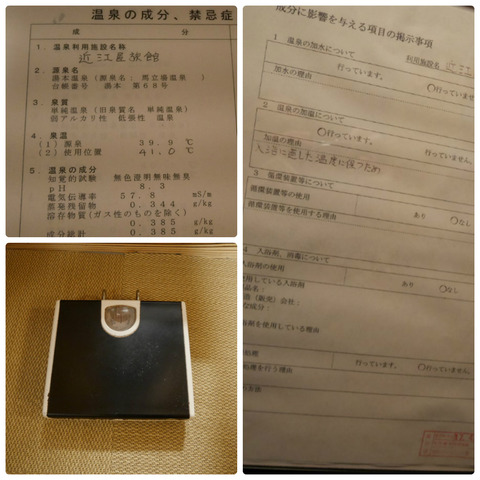 温泉の成分、禁忌症
成 分
1．温泉利用施設名称
近江屋旅館
2．源泉名
湯本温泉（源泉名：馬立場温泉 ）
台帳番号 湯本 第68号
3．泉質
単純温泉（旧泉質名 単純温泉）
弱アルカリ性 低張性 温泉
4．泉温
(1) 源泉 39.9 ℃
(2) 使用位置 41.0 ℃
5．温泉の成分
知覚的試験 無色澄明無味無臭
pH 8.3
電気伝導率 57.8 mS/m
蒸発残留物 0.344 g/kg
溶存物質(ガス性のものを除く)
0.385 g/kg
成分総計 0.385 g/kg
成分に影響を与える項目の掲示事項
利用施設名 近江
1 温泉の加水について
〇行っていませ
加水の理由
2 温泉の加温について
〇行っています。 行っていません。
加温の理由
入浴に適した温度に保つため
3 循環装置等について
循環装置等の使用 あり 〇なし
循環装置等を使用する理由
4 入浴剤、消毒について
入浴剤の使用 あり 〇なし
使用している入浴剤
品名：
造（販売）会社：
な成分：
浴剤を使用している理由
処理 行っています。 〇行っていません。
処理を行う理由
の方法